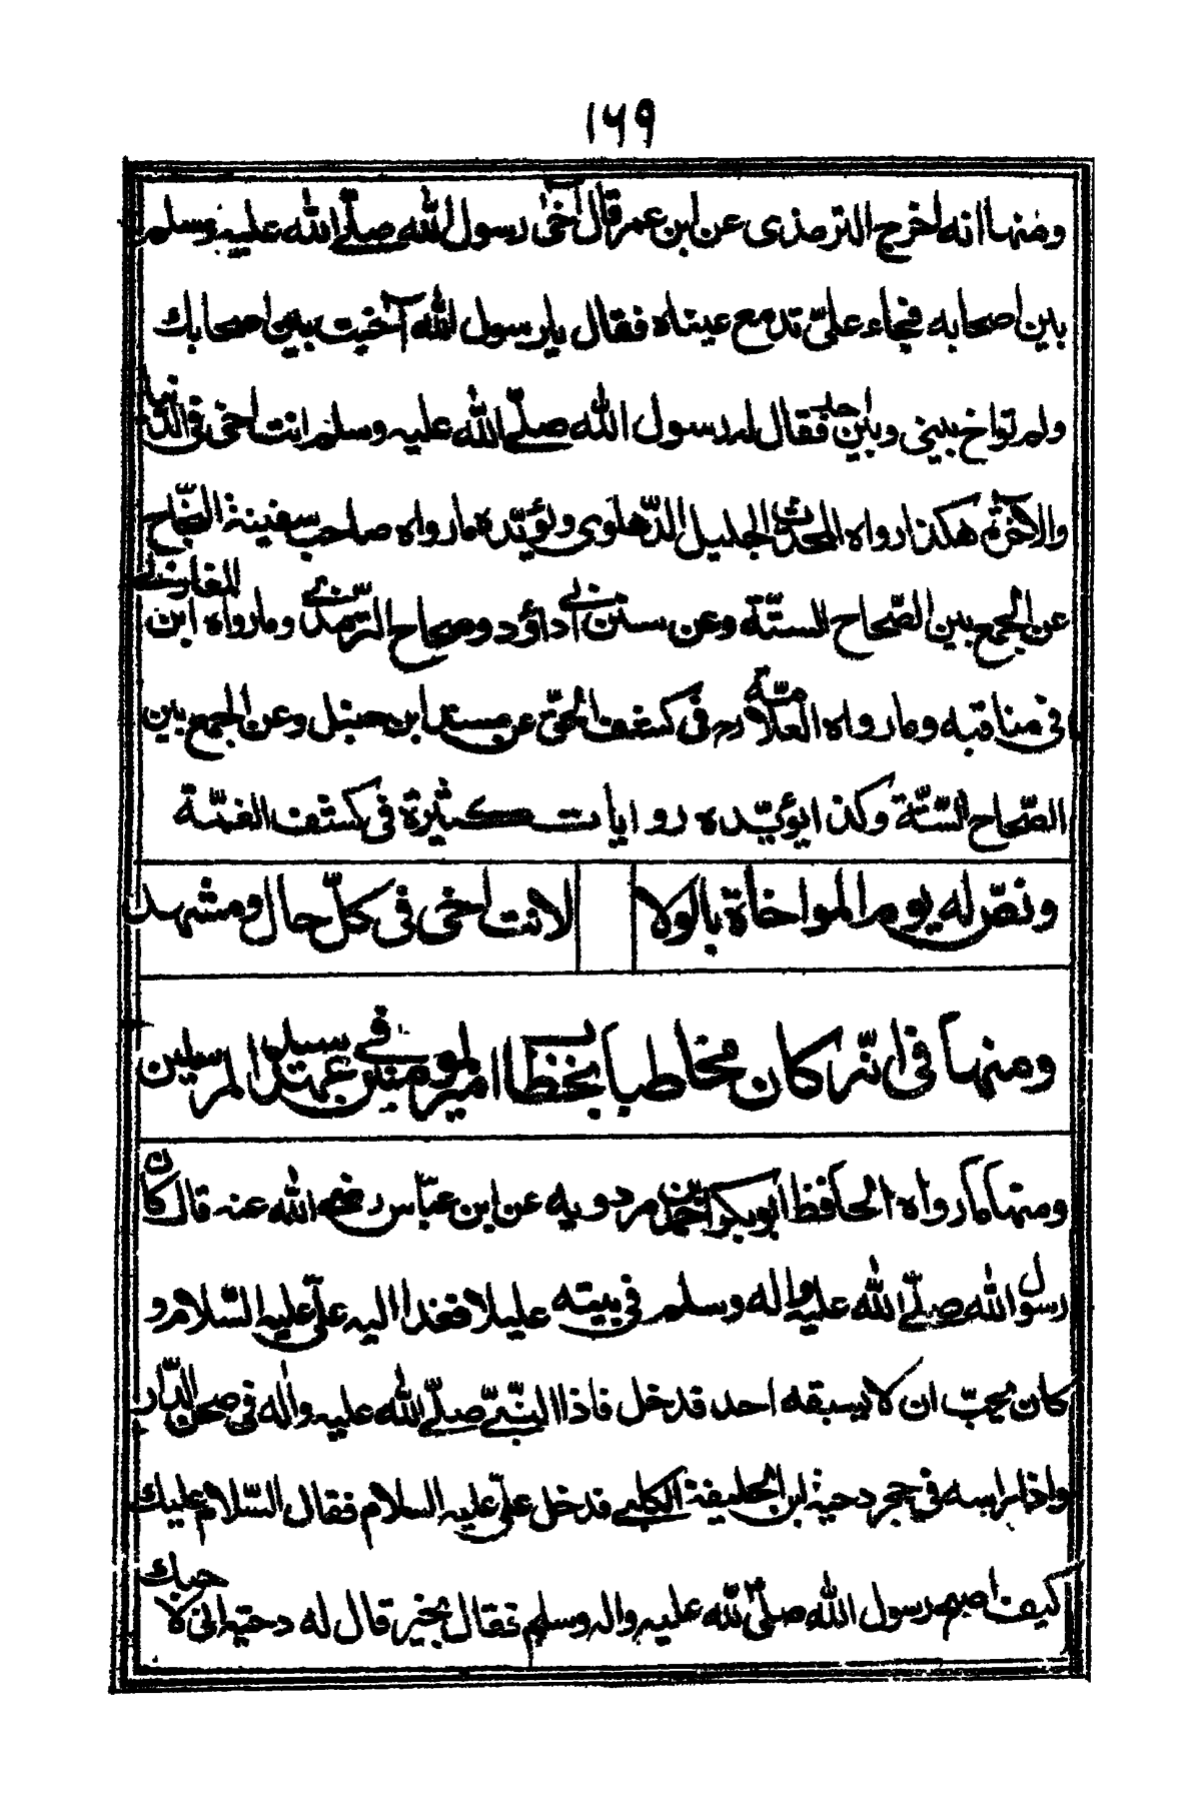 ١٦٩
ومنها انه اخرج الترمذی عن ابن عمر قال آخیٰ رسول الله صلّے الله علیه وسلم
بین اصحابه فجاء علیّ تدمع عیناه فقال یا رسول الله آخیت بین اصحابك
ولم تواخ بینی وبین احد فقال له رسول الله صلّے الله علیه وسلم انت اخی فی الدّنیا
والآخرة هکذا رواه المحدّث الجلیل الدّهلوی ویؤیّده ما رواه صاحب سفینة النّجاح
عن الجمع بین الصّحاح السّتّة وعن سنن أبی داؤد وصحاح التّرمذی وما رواه ابن المغازلے
فی مناقبه وما رواه العلّامة رہ فی کشف الحقّ عن مسند ابن حنبل وعن الجمع بین
الصّحاح السّتّة وکذا یؤیّده روایات کثیرة فی کشف الغمّة
ونصّ له یوم المواخاة بالولا لانت اخی فی کلّ حال ومشهد
ومنها فی انّه کان مخاطبا بخطاب امیر المومنین فی عهد سید المرسلین
ومنها ما رواه الحافظ ابو بکر احمد بن مردویه عن ابن عبّاس رضی الله عنه قال کان
رسول الله صلّے الله علیه واله وسلم فی بیته علیلا فغدا الیه علیّ علیه السّلام و
کان یحبّ ان لا یسبقه احد فدخل فاذا النّبیّ صلّے الله علیه واله فی صحن الدّار
واذا راسه فی حجر دحیة ابن الخلیفة الکلبے فدخل علیّ علیه السلام فقال السّلام علیك
کیف اصبح رسول الله صلّی لله علیه واله وسلم فقال بخیر قال له دحیة انی لا حبك